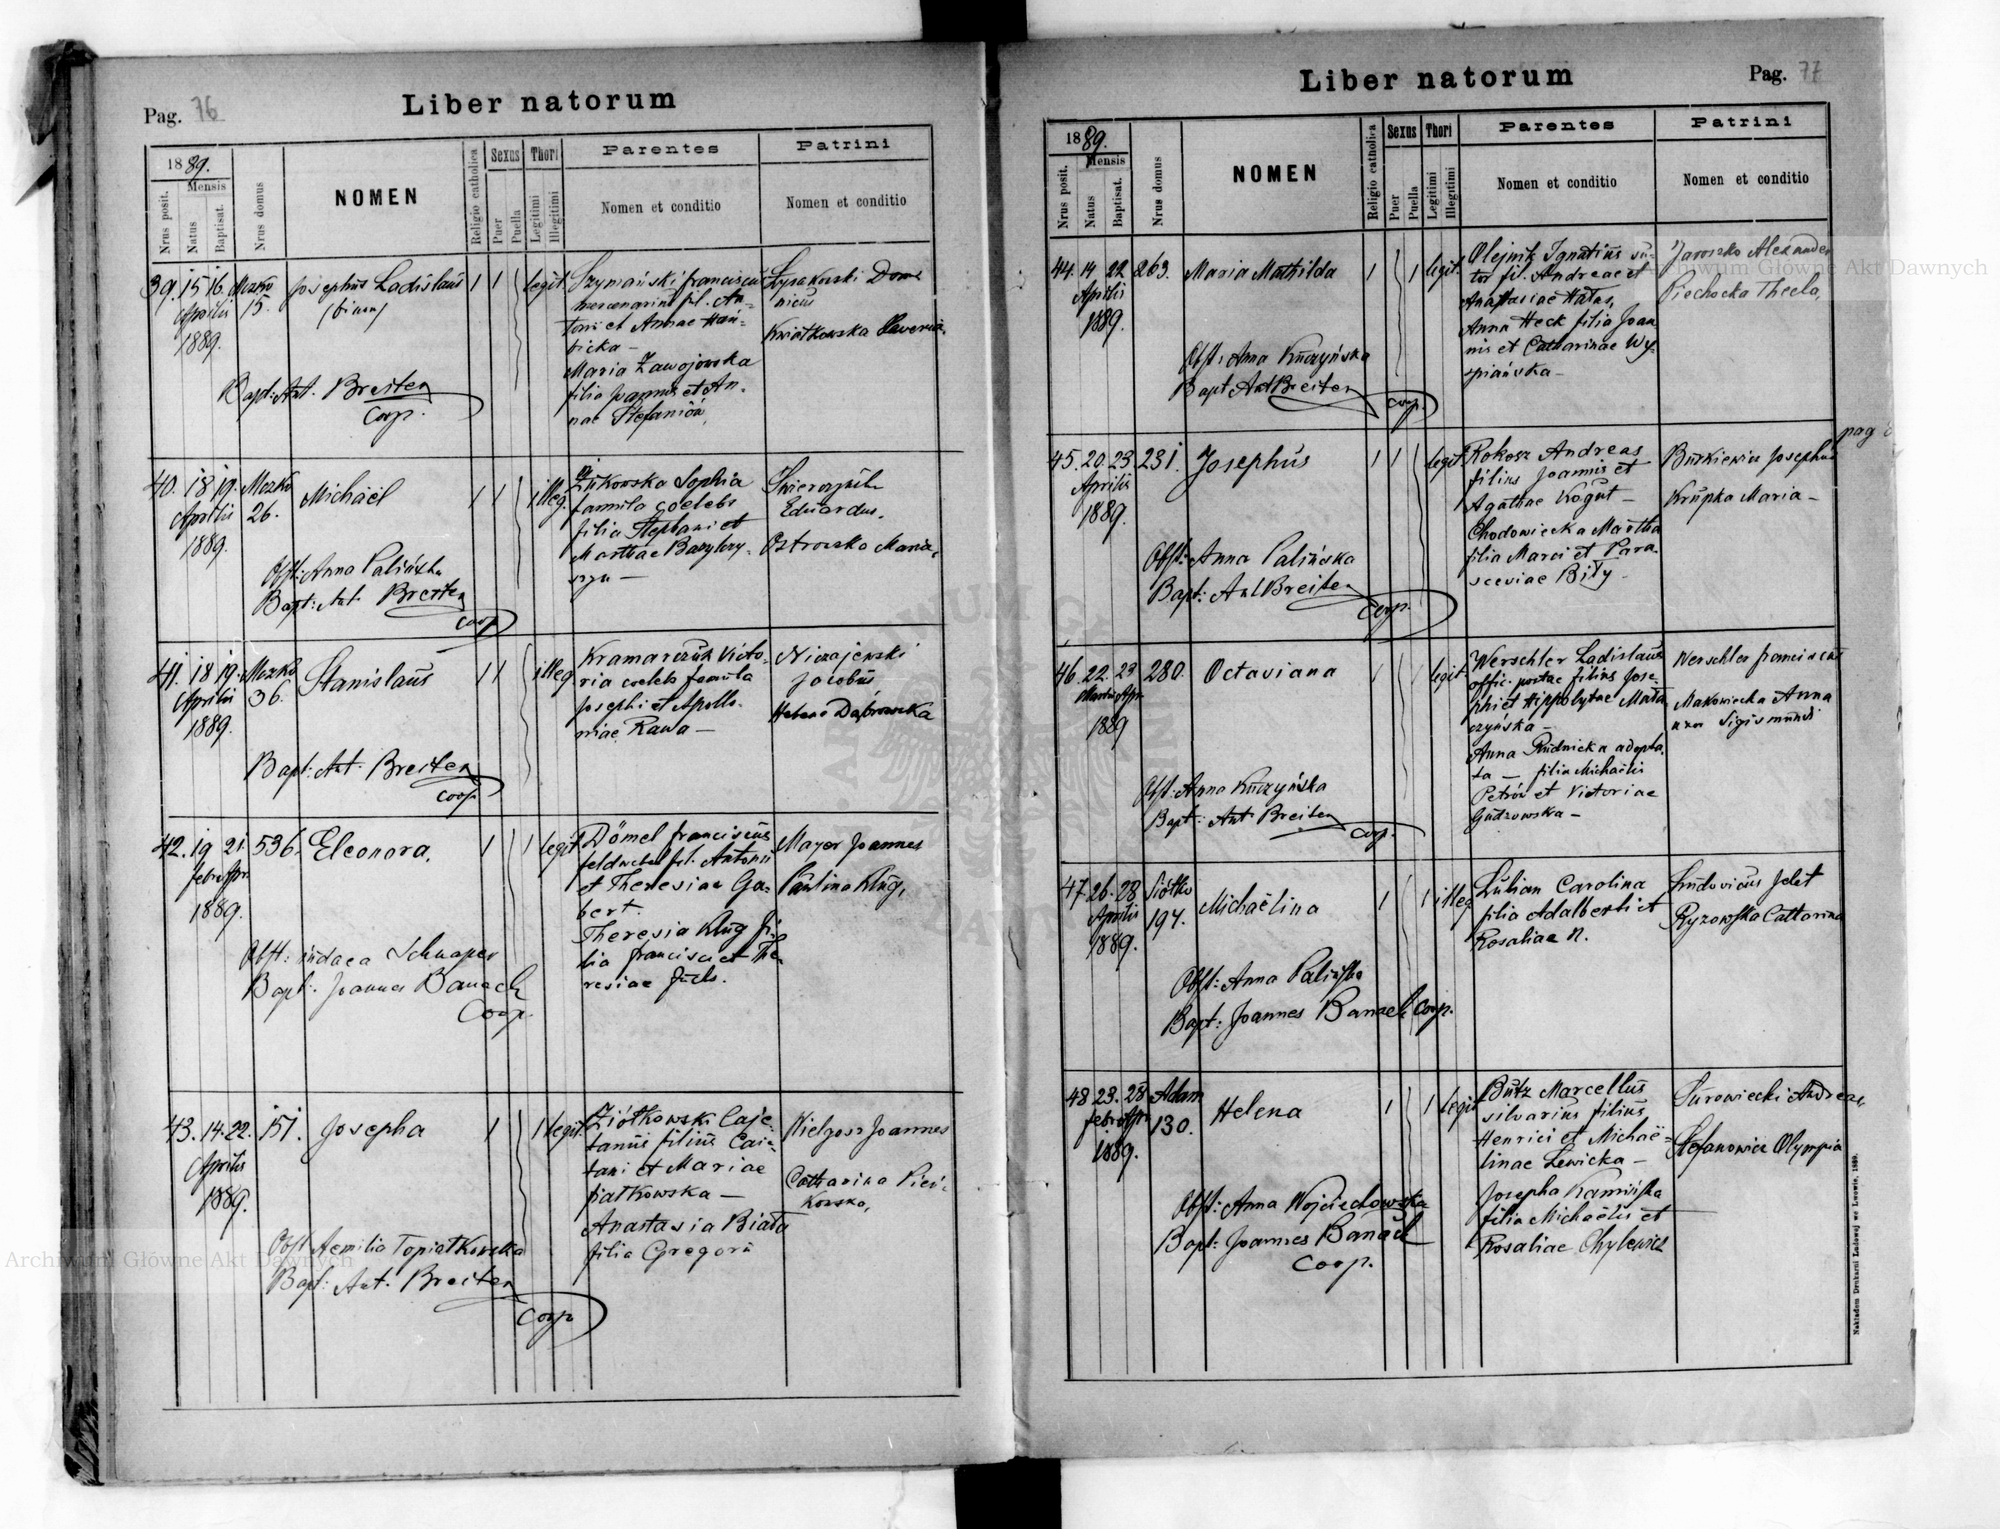 Pag. 76
Liber natorum
1889.
Mensis
Nrus posit.
Natus
Baptisat.
Nrus domus
NOMEN
Religio catholica
Sexus
Puer
Puella
Thori
Legitimi
Illegitimi
Parentes
Nomen et conditio
Patrini
Nomen et conditio
39. 15 16. 15. Josephus Ladislaus 1 1 legit. Szymański franciscus
Aprilis
1889.
fil. An-
toni et Annae
Maria Zawojowska
filia Joannis et An-
nae Stefaniów
Kwiatkowska
Bapt: Ant. Breiter
Coop.
40. 18 19. 26. Michaël 1 1 illeg.
Aprilis
1889.
Sophia
famula coelebs
filia Stephani et
Marthae
Eduardus.
Ostrowska Maria,
Obst: Anna Palińska
Bapt: Ant. Breiter
coop
41. 18 19. 36. Stanislaus 1 1 illeg.
Aprilis
1889.
Kramarczuk Victo-
ria coelebs famula
Josephi et Apollo-
niae Rawa —
Niczajewski
Jacobus
Helena Dąbrowska
Bapt: Ant. Breiter
coop
42. 19 21. 536. Eleonora. 1 1 legit.
Febr Apr
1889.
Dömel franciscus
feldwebel fil. Antonii
et Theresiae Ga-
bert.
Theresia Klug fi-
lia francisci et The-
resiae Fuchs.
Mayer Joannes
Paulina Klug,
Obst: judaea Schnaper
Bapt: Joannes Banach
Coop.
43. 14. 22. 151. Josepha 1 1 legit.
Aprilis
1889.
Ziółkowski Caje-
tanus filius Caie-
tani et Mariae
Piatkowska —
Anastasia Biała
filia Gregorii
Kielgosz Joannes
Catharina Pień-
kowska,
Obst Aemilia Topiatkowska
Bapt: Ant. Breiter
Coop
Liber natorum
Pag. 77
1889.
Mensis
Nrus posit.
Natus
Baptisat.
Nrus domus
NOMEN
Religio catholica
Sexus
Puer
Puella
Thori
Legitimi
Illegitimi
Parentes
Nomen et conditio
Patrini
Nomen et conditio
44. 14 22 263. Maria Mathilda 1 1 legit.
Aprilis
1889.
Olejnik Ignatius su-
tor fil. Andreae et
Anastasiae Hatas,
Anna Heck filia Joan
nis et Catharinae Wy-
spiańska —
Jaroszko Alexander
Piechocka Thecla,
Obst: Anna Kuczyńska
Bapt Ant Breiter
coop.
45. 20. 23. 231. Josephus 1 1 legit.
Aprilis
1889.
Rokosz Andreas
filius Joannis et
Agathae Kogut —
Chodowiecka Martha
filia Marci et Para-
sceviae Biły —
Burkiewicz Josephus
Krupka Maria —
pag
Obst: Anna Palińska
Bapt: Ant Breiter
Coop.
46. 22. 23 280. Octaviana 1 1 legit.
1889
Werschler Ladislaus
offic. postae filius Jose-
phi et Hippolytae Mała
czyńska —
Anna Rudnicka adopta-
ta — filia Michaëlis
Petrów et Victoriae
Gudzowska —
Werschler franciscus
Makowiecka Anna
uxor Sigismundi
Obst: Anna Kuczyńska
Bapt: Ant Breiter
Coop.
47. 26. 28 197. Michaëlina 1 1 illeg.
Aprilis
1889.
Lulian Carolina
filia Adalberti et
Rosaliae N.
Ludovicus Jelet
Ryzowska Catharina
Obst: Anna Palińska
Bapt: Joannes Banach Coop.
48 23. 28 Adam Helena 1 1 legit.
130.
1889.
Butz Marcellus
silvarius filius
Henrici et Michaë-
linae Lewicka —
Josepha Kamińska
filia Michaëlis et
Rosaliae Chylewicz
Surowiecki Andreas,
Stefanowicz Olympia
Obst: Anna Wojciechowska
Bapt: Joannes Banach
Coop.
Nakładem Drukarni Ludowej we Lwowie, 1889.
Archiwum Główne Akt Dawnych
Archiwum Główne Akt Dawnych